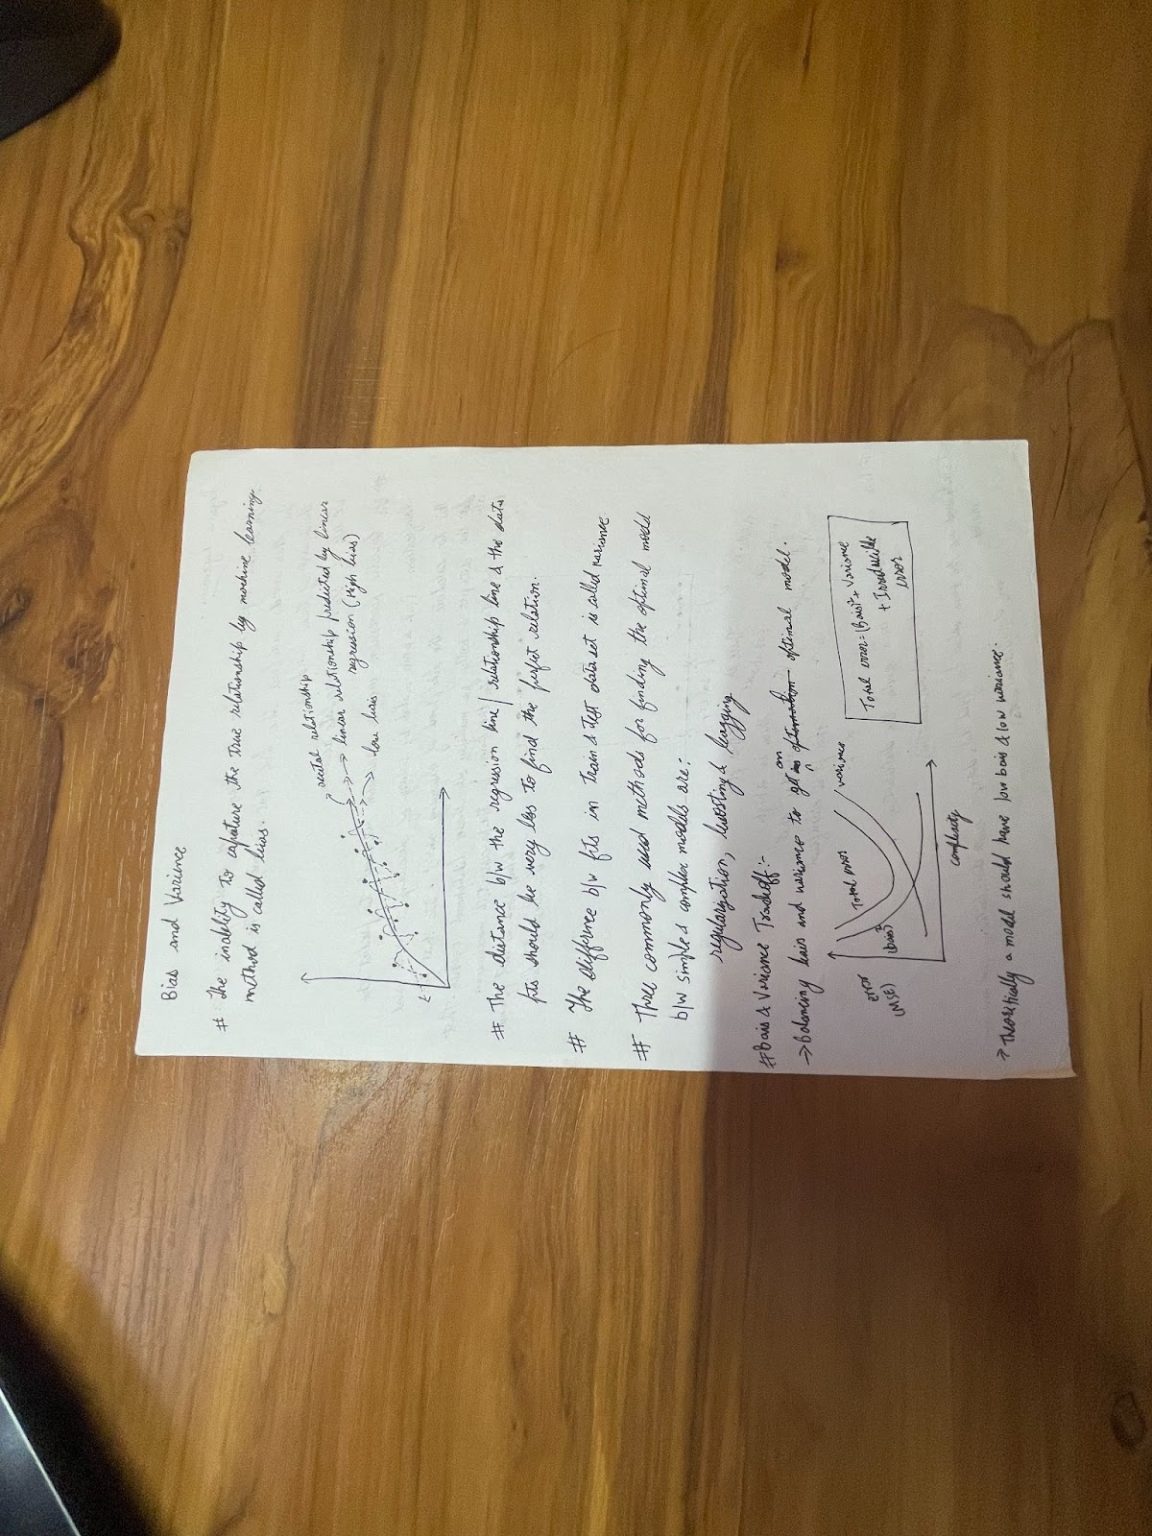 Bias and Varience
# The inability to capature the true relationship by machine learning
method is called bias.
acutal relationship
linear relationship predicted by linear
regression (High bias)
low bias
# The distance b/w the regression line / relationship line & the data
pts should be very less to find the perfect relation.
# The differnce b/w fits in train & test data set is called varience
# Three commonly used methods for finding the optimal model
b/w simple & complex models are:
regularization, boosting & bagging
# Bais & Variance Tradeoff:-
an
→ balancing bais and variance to get optimal model.
Total error
variance
Total error = (Bais)² + Variance
+ Irreducible
error
error
(MSE)
(Bais)²
complexity
→ Theoritically a model should have low bais & low variance.